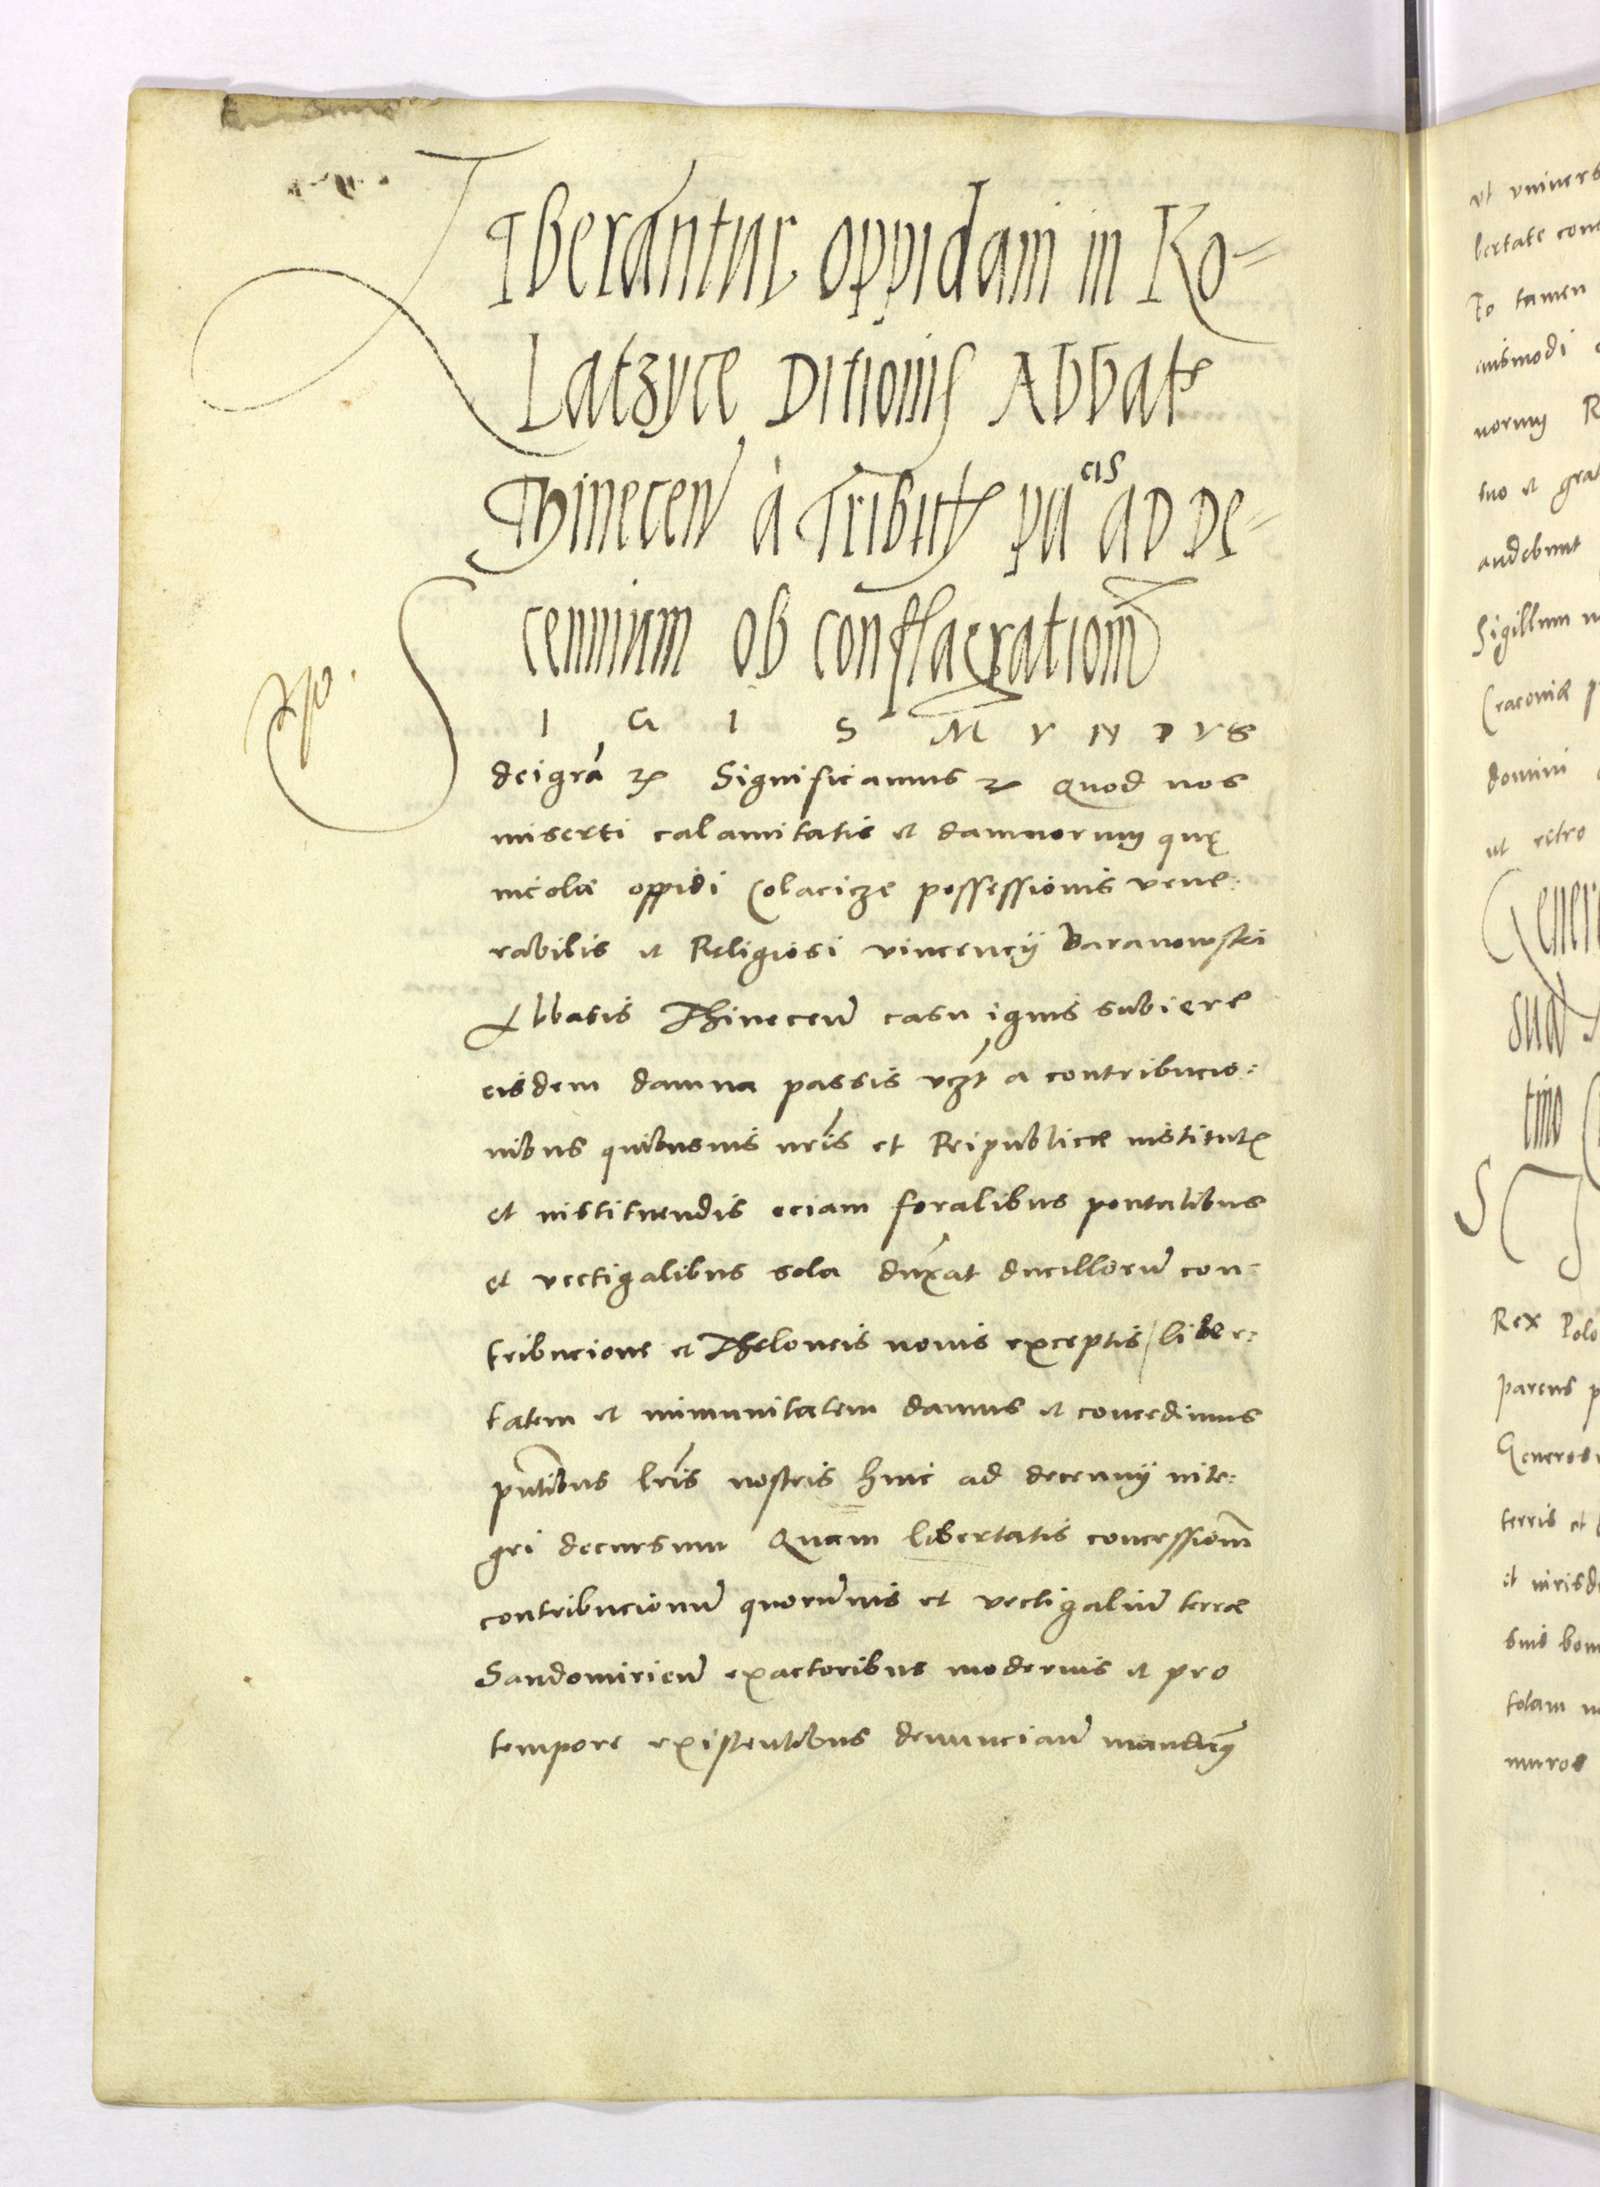 Liberantur oppidani in Ko=
Latzyce Ditionis Abbatis
Thinecen̄ à Tributis pu^cis AD DE=
cennium ob conflagrationē
SIGISMVNDVS
dei grā etc Significamus etc Quod nos
miserti calamitatis et damnorum quę
incolæ oppidi Colacicze possessionis vene:
rabilis et Religiosi vincencÿ Baranowski
Abbatis Thinecen̄ casu ignis subiere
eisdem damna passis vczt a contribucio:
nibus quibusuis nrīs et Reipublicæ institutis
et instituendis eciam foralibus pontalibus
et vectigalibus sola dūtaxat ducillorū con:
tribucione et Theloneis nouis exceptis / liber:
tatem et immunitatem damus et concedimus
pn̄tibus lrīs nostris hinc ad decennÿ inte:
gri decursum Quam libertatis concessionē
contribucionū quorūuis et vectigaliū terræ
Sandomirien̄ exactoribus modernis et pro
tempore existentibus denunciam̄ mandamusq̄
ut univers
bertate con
to tamen
eiusmodi
norum R
tuo et gra
audebunt
Sigillum n
Cracoviæ p
domini
ut retro
Genero
sua
tino
S
Rex Polo
parens p
Generos
terris et
et iurisd
suis bon
totam n
muros